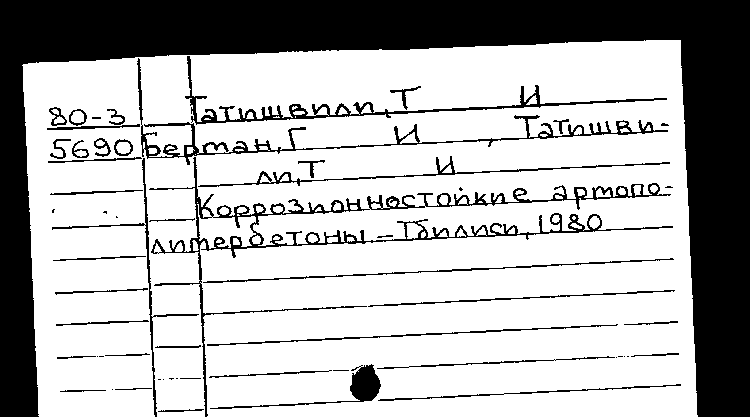 80-3 Татишвили, Т И
5690 Берман, Г И , Татишви-
ли, Т И
Коррозионностойкие армопо-
литербетоны – Тбилиси, 1980